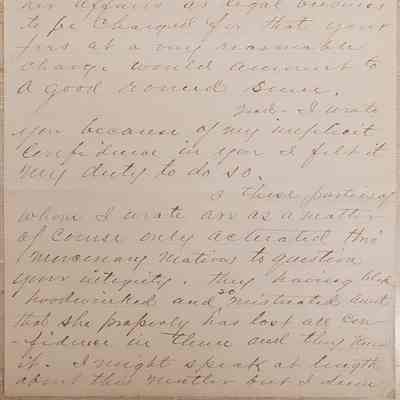 his affairs as legal business
to be charged for that your
fees at a very reasonable
charge would amount to
a good round sum.
I wrote
you because of my implicit
confidence in you I felt it
my duty to do so.
These parties of
whom I wrote are as a matter
of course only actuated thro'
mercenary motives to question
your integrity. They having
hoodwinked and so mistreated aunt
that she properly has lost all con-
fidence in them and they know
it. I might speak at length
about this matter but I deem